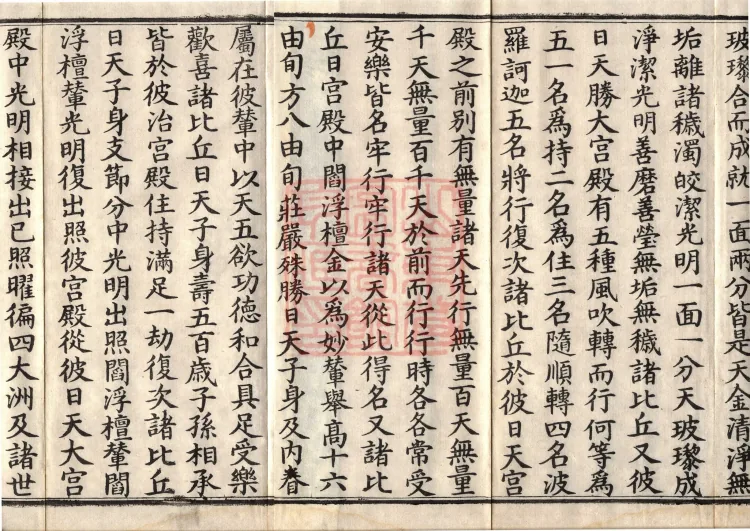 玻瓈合而成就一面兩分皆是天金清淨無
垢離諸穢濁皎潔光明一面一分天玻瓈成
淨潔光明善磨善瑩無垢無穢諸比丘又彼
日天勝大宮殿有五種風吹轉而行何等爲
五一名爲持二名爲住三名隨順轉四名波
羅訶迦五名將行復次諸比丘於彼日天宮
殿之前別有無量諸天先行無量百天無量
千天無量百千天於前而行行時各各常受
安樂皆名牢行牢行諸天從此得名又諸比
丘日宮殿中閻浮檀金以爲妙輦舉高十六
由旬方八由旬莊嚴殊勝日天子身及内眷
屬在彼輦中以天五欲功德和合具足受樂
歡喜諸比丘日天子身壽五百歲子孫相承
皆於彼治宮殿住持滿足一劫復次諸比丘
日天子身支節分中光明出照閻浮檀輦閻
浮檀輦光明復出照彼宮殿從彼日天大宮
殿中光明相接出已照曜徧四大洲及諸世